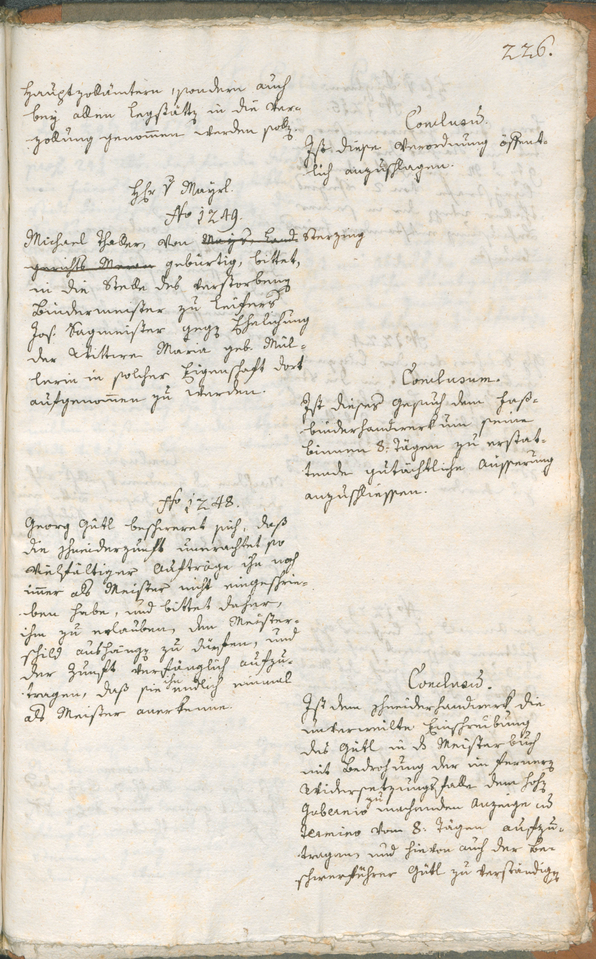 226.
Hauptzollämtern, sondern auch
bey allen Legstätt in die Ver-
zollung genommen werden soll
Conclusū.
Ist diese Verordnung öffent-
lich anzuschlagen.
Hhr v Mayrl.
No 1249.
Michael Thaler, von Mays Land Sterzing
gerichts Meran gebürtig, bittet,
in die Stelle des verstorbeng
Bindermeister zu Leifers
Jos. Sagmeister gegen Ehelichung
der Wittwe Maria geb. Mül-
lerin in solcher Eigenschaft dort
aufgenommen zu werden.
Conclusum.
Ist dieses Gesuch dem Faß-
binderhandwerk um seine
binnen 8. Tägen zu erstat-
tende gutächtliche Äusserung
anzuschliessen.
No 1248.
Georg Gütl beschweret sich, daß
die Schneiderzunft unerachtet so
vielfältiger Aufträge ihn noch
immer als Meister nicht eingeschrie-
ben habe, und bittet daher,
ihm zu erlauben, den Meister-
schild aushängen zu dürfen, und
der Zunft verfänglich aufzu-
tragen, daß sie ihn endlich einmal
als Meister anerkenne.
Conclusū.
Ist dem Schneiderhandwerk die
unverweilte Einschreibung
des Gütl in ds Meisterbuch
mit Bedrohung der im fernern
Widersetzungsfalle dem hohen
Gubernio zu machenden Anzeige in
Termino von 8. Tägen aufzu-
tragen, und hievon auch der Be-
schwerführer Gütl zu verständigen